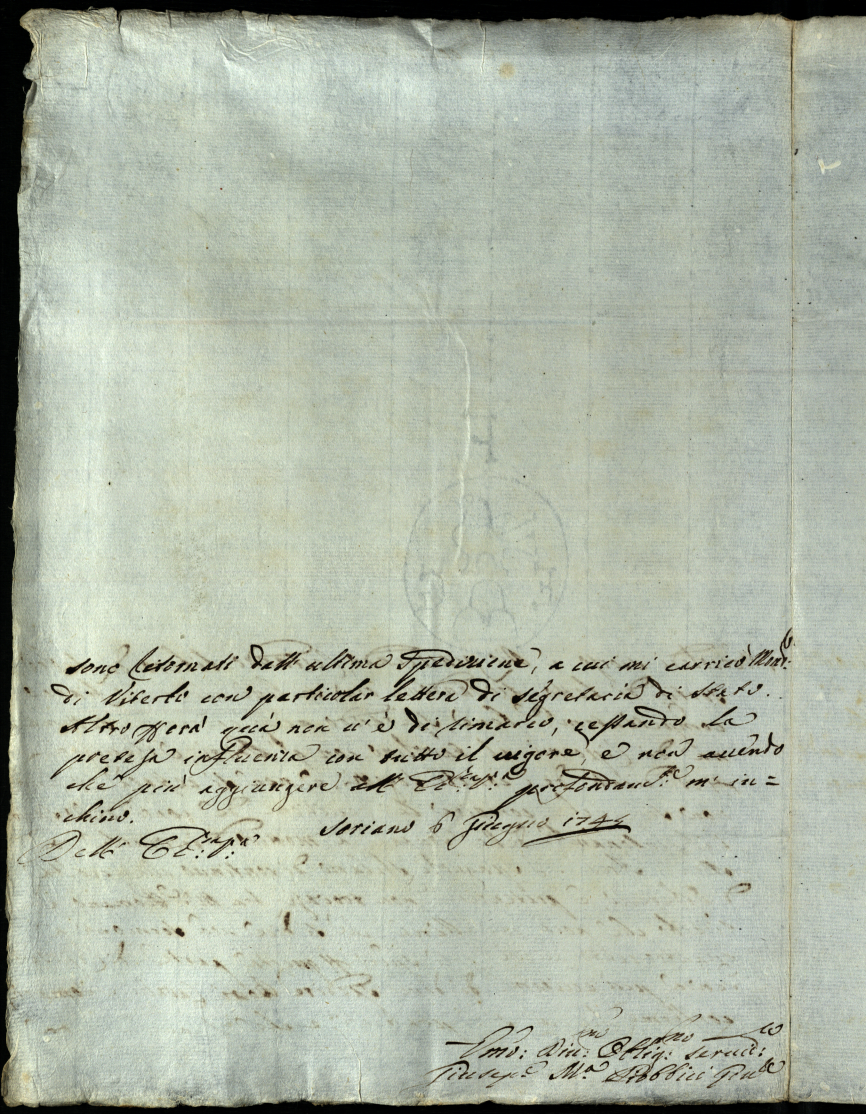 sono ritornati dall' ultima Spedizione, a cui mi carricò Mons:
di Viterbo con particolar lettera di Segretaria di Stato.
Altro p ora quà non v' è di rimarco, cessando la
presesa influenza con tutto il vigore, e non avendo
che più aggiungere all' Ecc:za V:ra profondam:te m' in=
chino.
Soriano 6 Giugno 174
Dell' Ecc:za V:ra
Umo: Div:mo Oblig:mo Servid:re
Giusep:e M:a